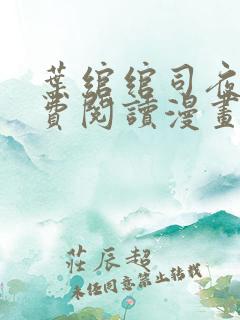 葉綰綰司夜
費閱讀漫畫
莊辰超
未經同意禁止轉載